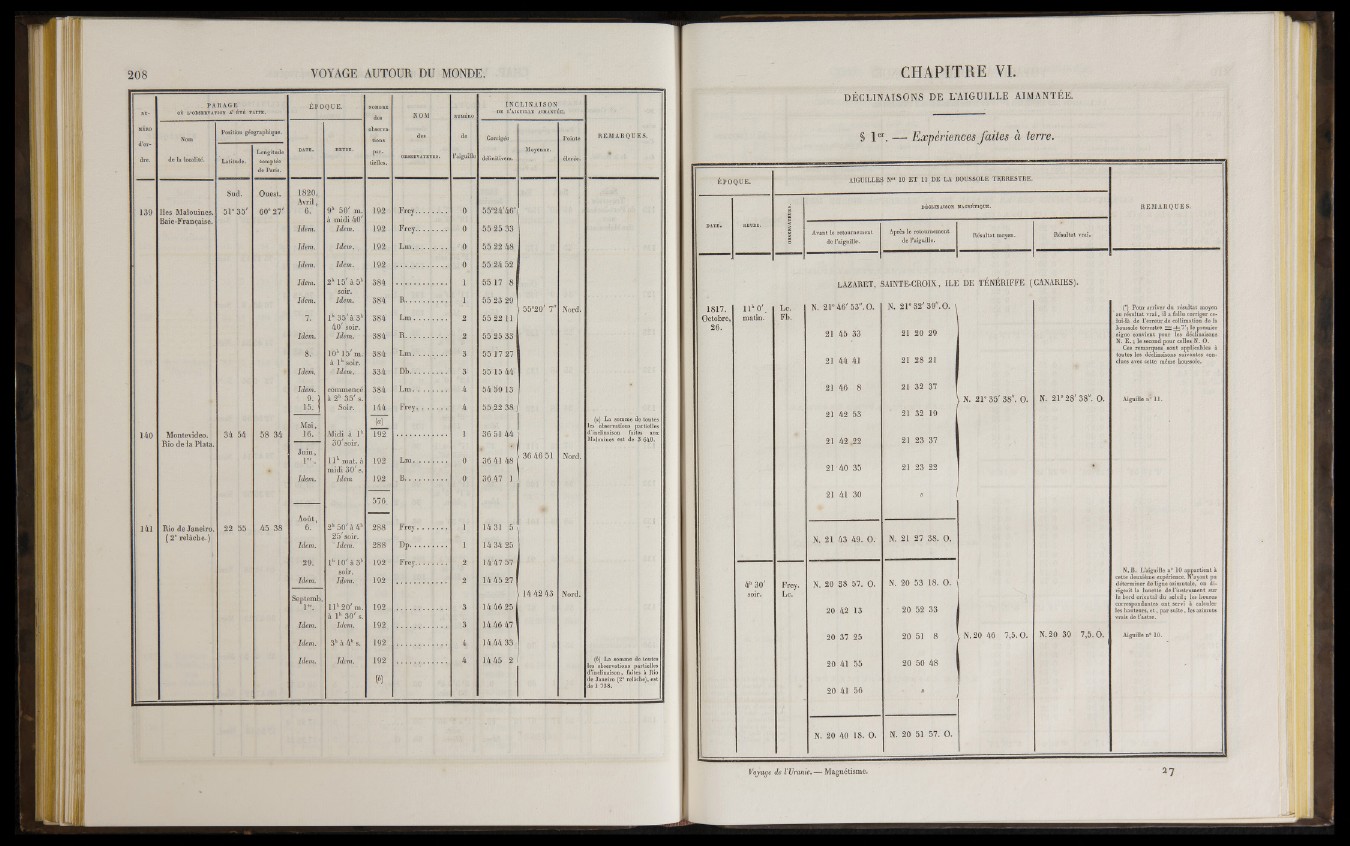 208 VOYAGE AUTOUR DU MONDE.
NUMÉRO d'ordre. PARAGE OÙ L'OBSERVATION A ÉTÉ FAITE. ÉPOQUE. NOMBRE des observations partielles. NOM des OBSERVATEURS. NUMÉRO de l'aiguille INCLINAISON DE L'AIGUILLE AIMANTÉE. REMARQUES.
Nom de la localité. Position géographique. DATE. HEURE. Corrigée définitivem. Moyenne. Pointe élevée.
Latitude. Longitude comptée de Paris.
Sud. Ouest. 1820, Avril,
139 Iles Malouines. Baie-Française. 51° 35' 60° 27' 6. 9h 50' m. à midi 40' 192 Frey........ 0 55°24'46"
Idem. Idem. 192 Frey........ 0 55 25 33
Idem. Idem. 192 Lm......... 0 55 22 48
Idem. Idem. 192 ............ 0 55 24 52
Idem. 2h 15' à 5h soir. 384 ............ 1 55 17 8
Idem. Idem. 384 R.......... 1 55 23 29
55°20' 7" Nord.
7. 1h 35' à 3h 40' soir. 384 Lm......... 2 55 22 11
Idem. Idem. 384 R.......... 2 55 25 33
8. 10h 15' m. à 1h soir. 384 Lm......... 3 55 17 27
Idem. Idem. 334 Db......... 3 55 15 44
Idem. commencé 384 Lm......... 4 54 50 15
9. à 2h 35' s.
15. Soir. 144 Frey........ 4 55 22 38
(a)
(a) La somme de toutes les observations partielles d'inclinaison faites aux Malouines est de 3 640.
Mai,
140 Montevideo. Rio de la Plata. 34 54 58 34 16. Midi à 1h 30' soir. 192 ............ 1 36 51 44
Juin,
1er. 11h mat. à midi 30' s. 192 Lm......... 0 36 41 48
36 46 51 Nord.
Idem. Idem. 192 R.......... 0 36 47 1
576
Août,
141 Rio de Janeiro. (2e relâche.) 22 55 45 38 6. 2h 50' à 4h 25' soir. 288 Frey........ 1 14 31 5
Idem. Idem. 288 Dp......... 1 14 34 25
29. 1h 10' à 3h soir. 192 Frey........ 2 14 47 57
Idem. Idem. 192 ............ 2 14 45 27
14 42 43 Nord.
Septemb.
1er. 11h 20' m. à 1h 30' s. 192 ............ 3 14 46 25
Idem. Idem. 192 ............ 3 14 46 47
Idem. 3h à 4h s. 192 ............ 4 14 44 33
Idem. Idem. 192 ............ 4 14 45 2
(b)
(b) La somme de toutes les observations partielles d'inclinaison, faites à Rio de Janeiro (2e relâche), est de 1 728.
CHAPITRE VI.
DÉCLINAISONS DE L'AIGUILLE AIMANTÉE.
§ 1er. — Expériences faites à terre.
ÉPOQUE. AIGUILLES Nos 10 ET 11 DE LA BOUSSOLE TERRESTRE. REMARQUES.
DATE. HEURE. OBSERVATEURS. DÉCLINAISON MAGNÉTIQUE.
Avant le retournement de l'aiguille. Après le retournement de l'aiguille. Résultat moyen. Résultat vrai.
LAZARET, SAINTE-CROIX, ILE DE TÉNÉRIFFE (CANARIES).
1817. Octobre, 26. 11h 0' matin. Lc. Fb. N. 21° 46' 53". O. N. 21° 32' 39". O.
21 45 33 21 20 29
21 44 41 21 28 21
21 46 8 21 32 37
N. 21° 35' 38". O. N. 21° 28' 38". O.
21 42 53 21 32 19
21 42 22 21 23 37
21 40 35 21 23 22
21 41 30 "
N. 21 43 49. O. N. 21 27 38. O.
(*) Pour arriver du résultat moyen au résultat vrai, il a fallu corriger celui-là de l'erreur de collimation de la boussole terrestre 7'; le premier signe convient pour les déclinaisons N. E.; le second pour celles N. O.
Ces remarques sont applicables à toutes les déclinaisons suivantes conclues avec cette même boussole.
Aiguille n° 11.
4h 30' soir. Frey. Lc. N. 20 38 57. O. N. 20 53 18. O.
20 42 13 20 52 33
20 37 25 20 51 8
N. 20 46 7,5. O. N. 20 39 7,5. O.
20 41 55 20 50 48
20 41 56 "
N. 20 40 18. O. N. 20 51 57. O.
N. B. L'aiguille n° 10 appartient à cette deuxième expérience. N'ayant pu déterminer de ligne azimutale, on dirigeait la lunette de l'instrument sur le bord oriental du soleil; les heures correspondantes ont servi à calculer les hauteurs, et, par suite, les azimuts vrais de l'astre.
Aiguille n° 10.
Voyage de l'Uranie. — Magnétisme. 27